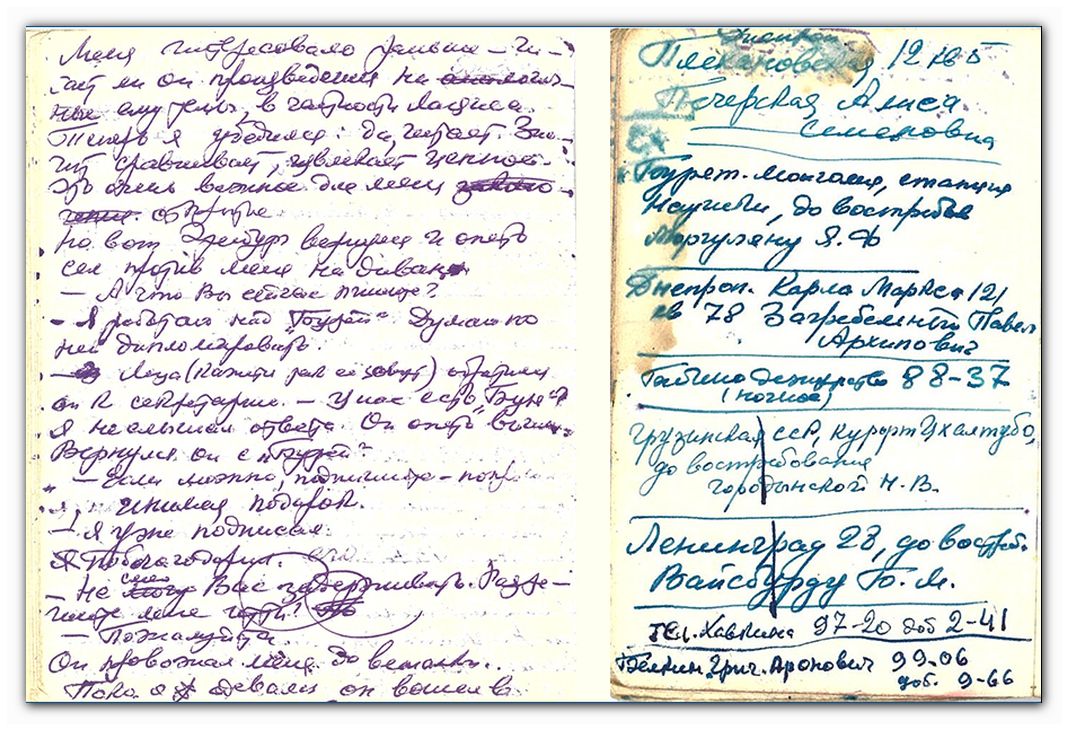 Меня интересовало раньше – чи-
тает ли он произведения на аналогич-
ные ему темы, в частности Лациса.
Теперь я убедился: да, читает. Зна-
чит сравнивает, извлекает ценное.
Это очень важное для меня
открытие
Но вот Эренбург вернулся и опять
сел против меня на диван
– А что Вы сейчас пишете?
– Я работаю над "Бурей". Думаю по
ней дипломировать.
– Люда (кажется так её зовут) обратился
он к секретарше. – У нас есть "Буря"?
Я не слышал ответа. Он опять вышел.
Вернулся он с "Бурей"
– Если можно, подпишите –
подарок.
– Я уже подписал.
Я поблагодарил.
– Не смею Вас задерживать. Разре-
шите мне идти!
– Пожалуйста.
Он провожал меня до вешалки..
Пока я одевался он вошел в
Плехановская 12 кв 5
Печерская Алиса
Семеновна
Бурят. Монголия, станция
Наушки, до востребов
Моргуляну Я. Ф
Днепроп. Карла Маркса 121
кв 78 Загребельный Павел
Архипович
дежурство 88-37
(ночное)
Грузинская ССР, курорт Цхалтубо,
до востребования
Городынской Н. В.
Ленинград 28, до востреб.
Вайсбурду Б. М.
тел. Хавкина 97-20 доб 2-41
Белкин Григ. Аронович 99-06
доб. 9-66